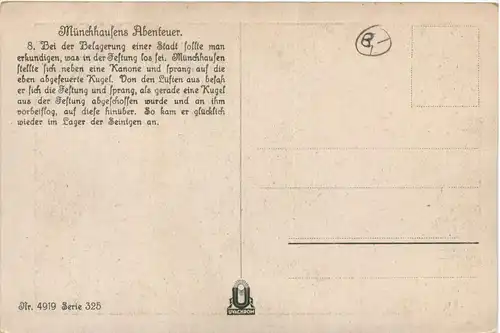 Münchhausens Abenteuer.
8. Bei der Belagerung einer Stadt sollte man
erkundigen, was in der Festung los sei. Münchhausen
stellte sich neben eine Kanone und sprang auf die
eben abgefeuerte Kugel. Von den Lüften aus besah
er sich die Festung und sprang, als gerade eine Kugel
aus der Festung abgeschossen wurde und an ihm
vorbeiflog, auf diese hinüber. So kam er glücklich
wieder im Lager der Seinigen an.
8,-
Nr. 4919 Serie 325
U
UVACHROM